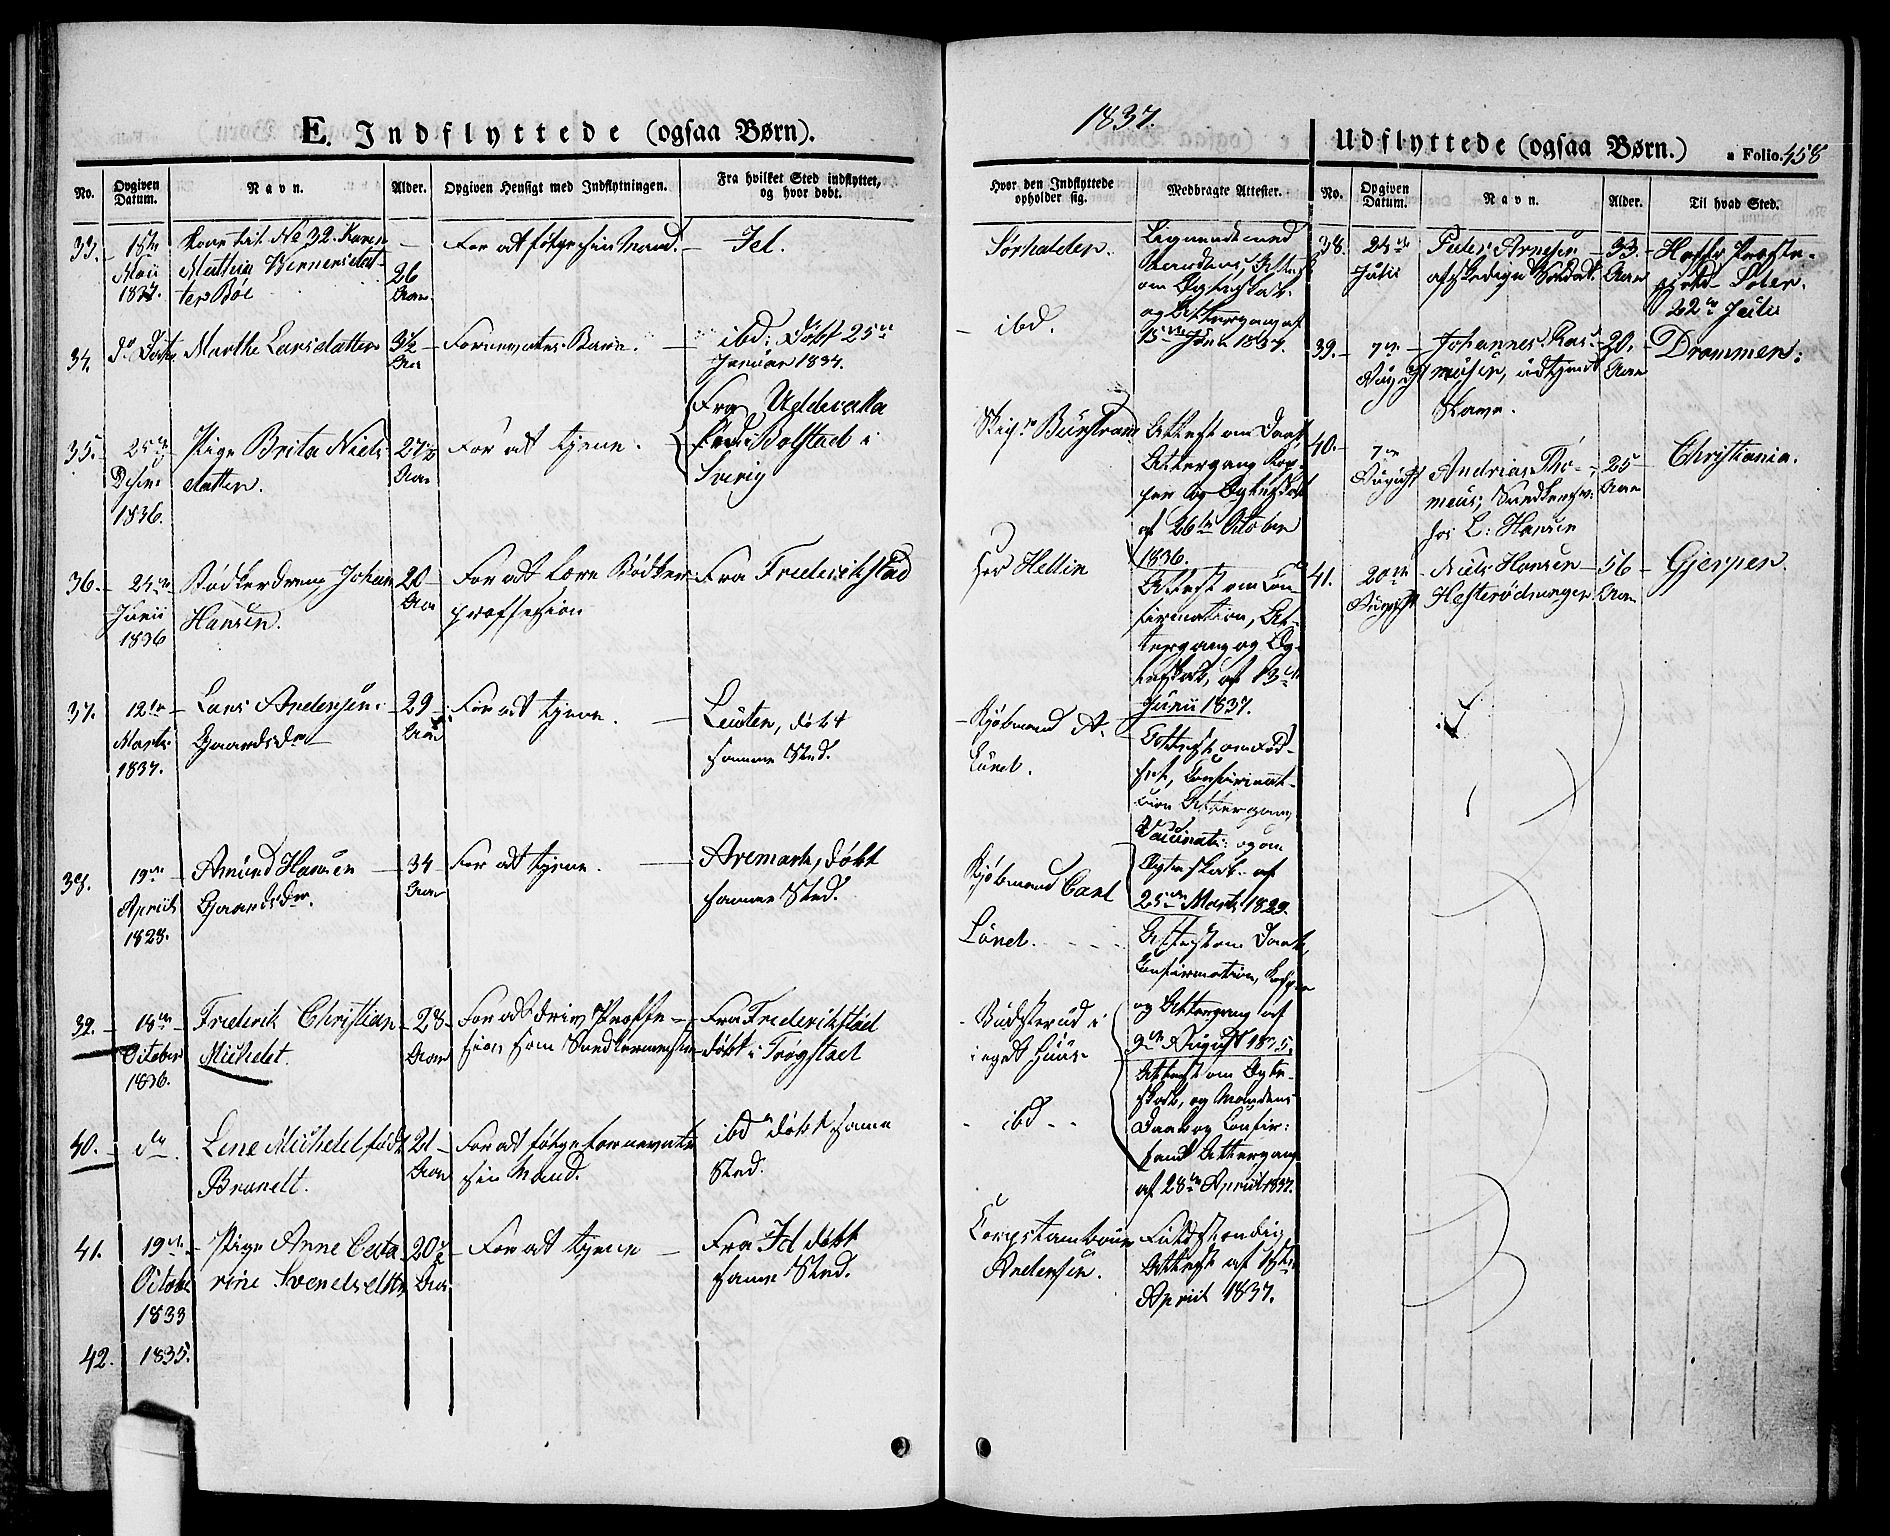 E. Indflyttede (ogsaa Børn).
No.
Opgiven Datum.
Navn.
Alder.
Opgiven Hensigt med Indflytningen.
Fra hvilket Sted indflyttet,
og hvor døbt.
33.
15de
Maii
1837.
Kone til No 32. Karen
Mathia
Bøe
26
Aar.
For at følge sin Mand.
Id.
34.
do Dato
Marthe Larsdatter
3½
Aar
Barn.
ibd. døbt 25de
Januar 1834.
35.
25de
1836.
Pige Brita Niels
datter.
27½
Aar
For at tjene.
Fra Uddevalla
født i Bolstad i
Sverig
36.
24de
Junii
1836
Bødkerdreng Johan
Hansen.
20
Aar
For at lære Bødker
proffesion
Fra Frederikstad
37.
12te
Marts
1837.
Lars Andersen
Gaardsdr
29
Aar
For at tjene.
døbt
samme Sted.
38.
19de
April
1828.
Amund Hansen
Gaardsdr.
34
Aar
For at tjene.
Aremark, døbt
samme Sted.
39.
18de
October
1836.
Frederik Christian
Michelet.
28
Aar
For at drive Proffe-
sion som Sadlermester
Fra Frederikstad
døbt i Trøgstad
40.
do
Lene Michelet født
Brandt.
21
Aar
For at følge
sin Mand.
ibd døbt samme
Sted.
41.
19de
October
1833
Pige Anne Catha
rine Svendsdttr
20
Aar
For at tjene
Fra Id døbt
samme Sted.
42.
1835.
1837.
Hvor den Indflyttede
opholder sig.
Medbragte Attester.
Sørhalden.
Ligeveed med
Mandens, Attest
om Ægteskab
og Altergang af
15de Juni 1837.
ibd.
Burstrand
Attest om Daab,
Altergang Kop-
per og Ægteskab
af 26de October
1836.
hos Hellin
Attest om Con-
firmation, Al-
tergang og Æg-
teskab, af 13de
Junii 1837.
Kjøbmand A.
Lund.
Attest om Fød-
sel, Confirmat-
ion Altergang,
Vaccinat: og om
Ægteskab af
25de Marts 1829.
Kjøbmand Carl
Lund.
Attest om Daab,
Confirmation, Kopper
og Altergang af
9de August 1835.
Budsterud i
eget Huus.
Attest om Ægte-
skab, og Mandens
Daab og Confir:
samt Altergang
af 28de April 1837.
ibd
Corpstambour
Andersen.
Fuldstændig
Attest af
April 1837.
Udflyttede (ogsaa Børn.)
a Folio. 458
No.
Opgiven
Datum.
Navn.
Alder.
Til hvad Sted.
38.
24de
Julii
Peder Arnesen
afskediget Soldat.
33
Aar
Præste-
gjeld
22de Julii
39.
7de
August
Johannes Ras-
musen, udtjent
Slave.
20
Aar
Drammen.
40.
7de
August
Andreas Tho-
meus;
hos L: Hansen
25
Aar
Christiania.
41.
20de
August
Niels Hansen
56
Aar
Gjerpen.